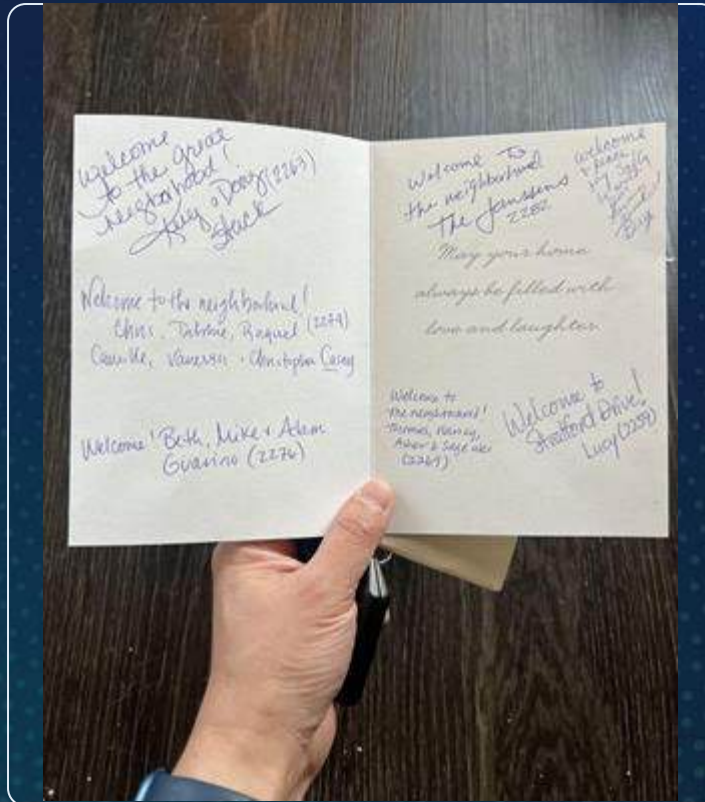 welcome
to the great
neighborhood!
& Doug (2263)
Stack
Welcome to the neighborhood!
Chris, Raquel (2279)
Camille, Vanessa & Christopher Casey
Welcome! Beth, Mike & Adam
Guarino (2276)
Welcome To
the neighborhood
The Janssens
2282
welcome
May your home
always be filled with
love and laughter.
Welcome to
the neighborhood!
Thomas, Nancy,
(2269)
Welcome to
Stratford Drive!
Lucy (2259)